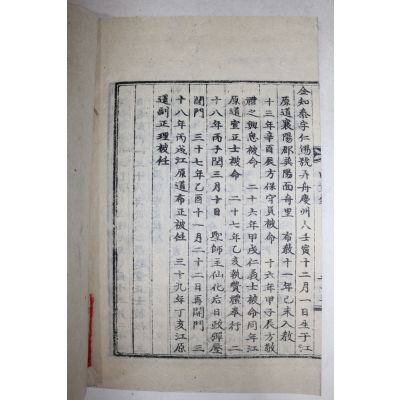 金知泰字仁錫號丹舟慶州人壬寅十二月一日生于江
原道襄陽郡巽陽面舟里 布教十一年己未入教
十三年辛酉辰方保守員被命 十六年甲子辰方敬
禮之興恩被命 二十六年甲戌仁義士被命同年江
原道宣正士被命 二十七年乙亥執贊禮奉行 二
十八年丙子閏三月十日 聖師主仙化后日政彈壓
閉門 三十七年乙酉十一月二十二日再開門 三
十八年丙戌江原道布正被任 三十九年丁亥江原
道副正理被任